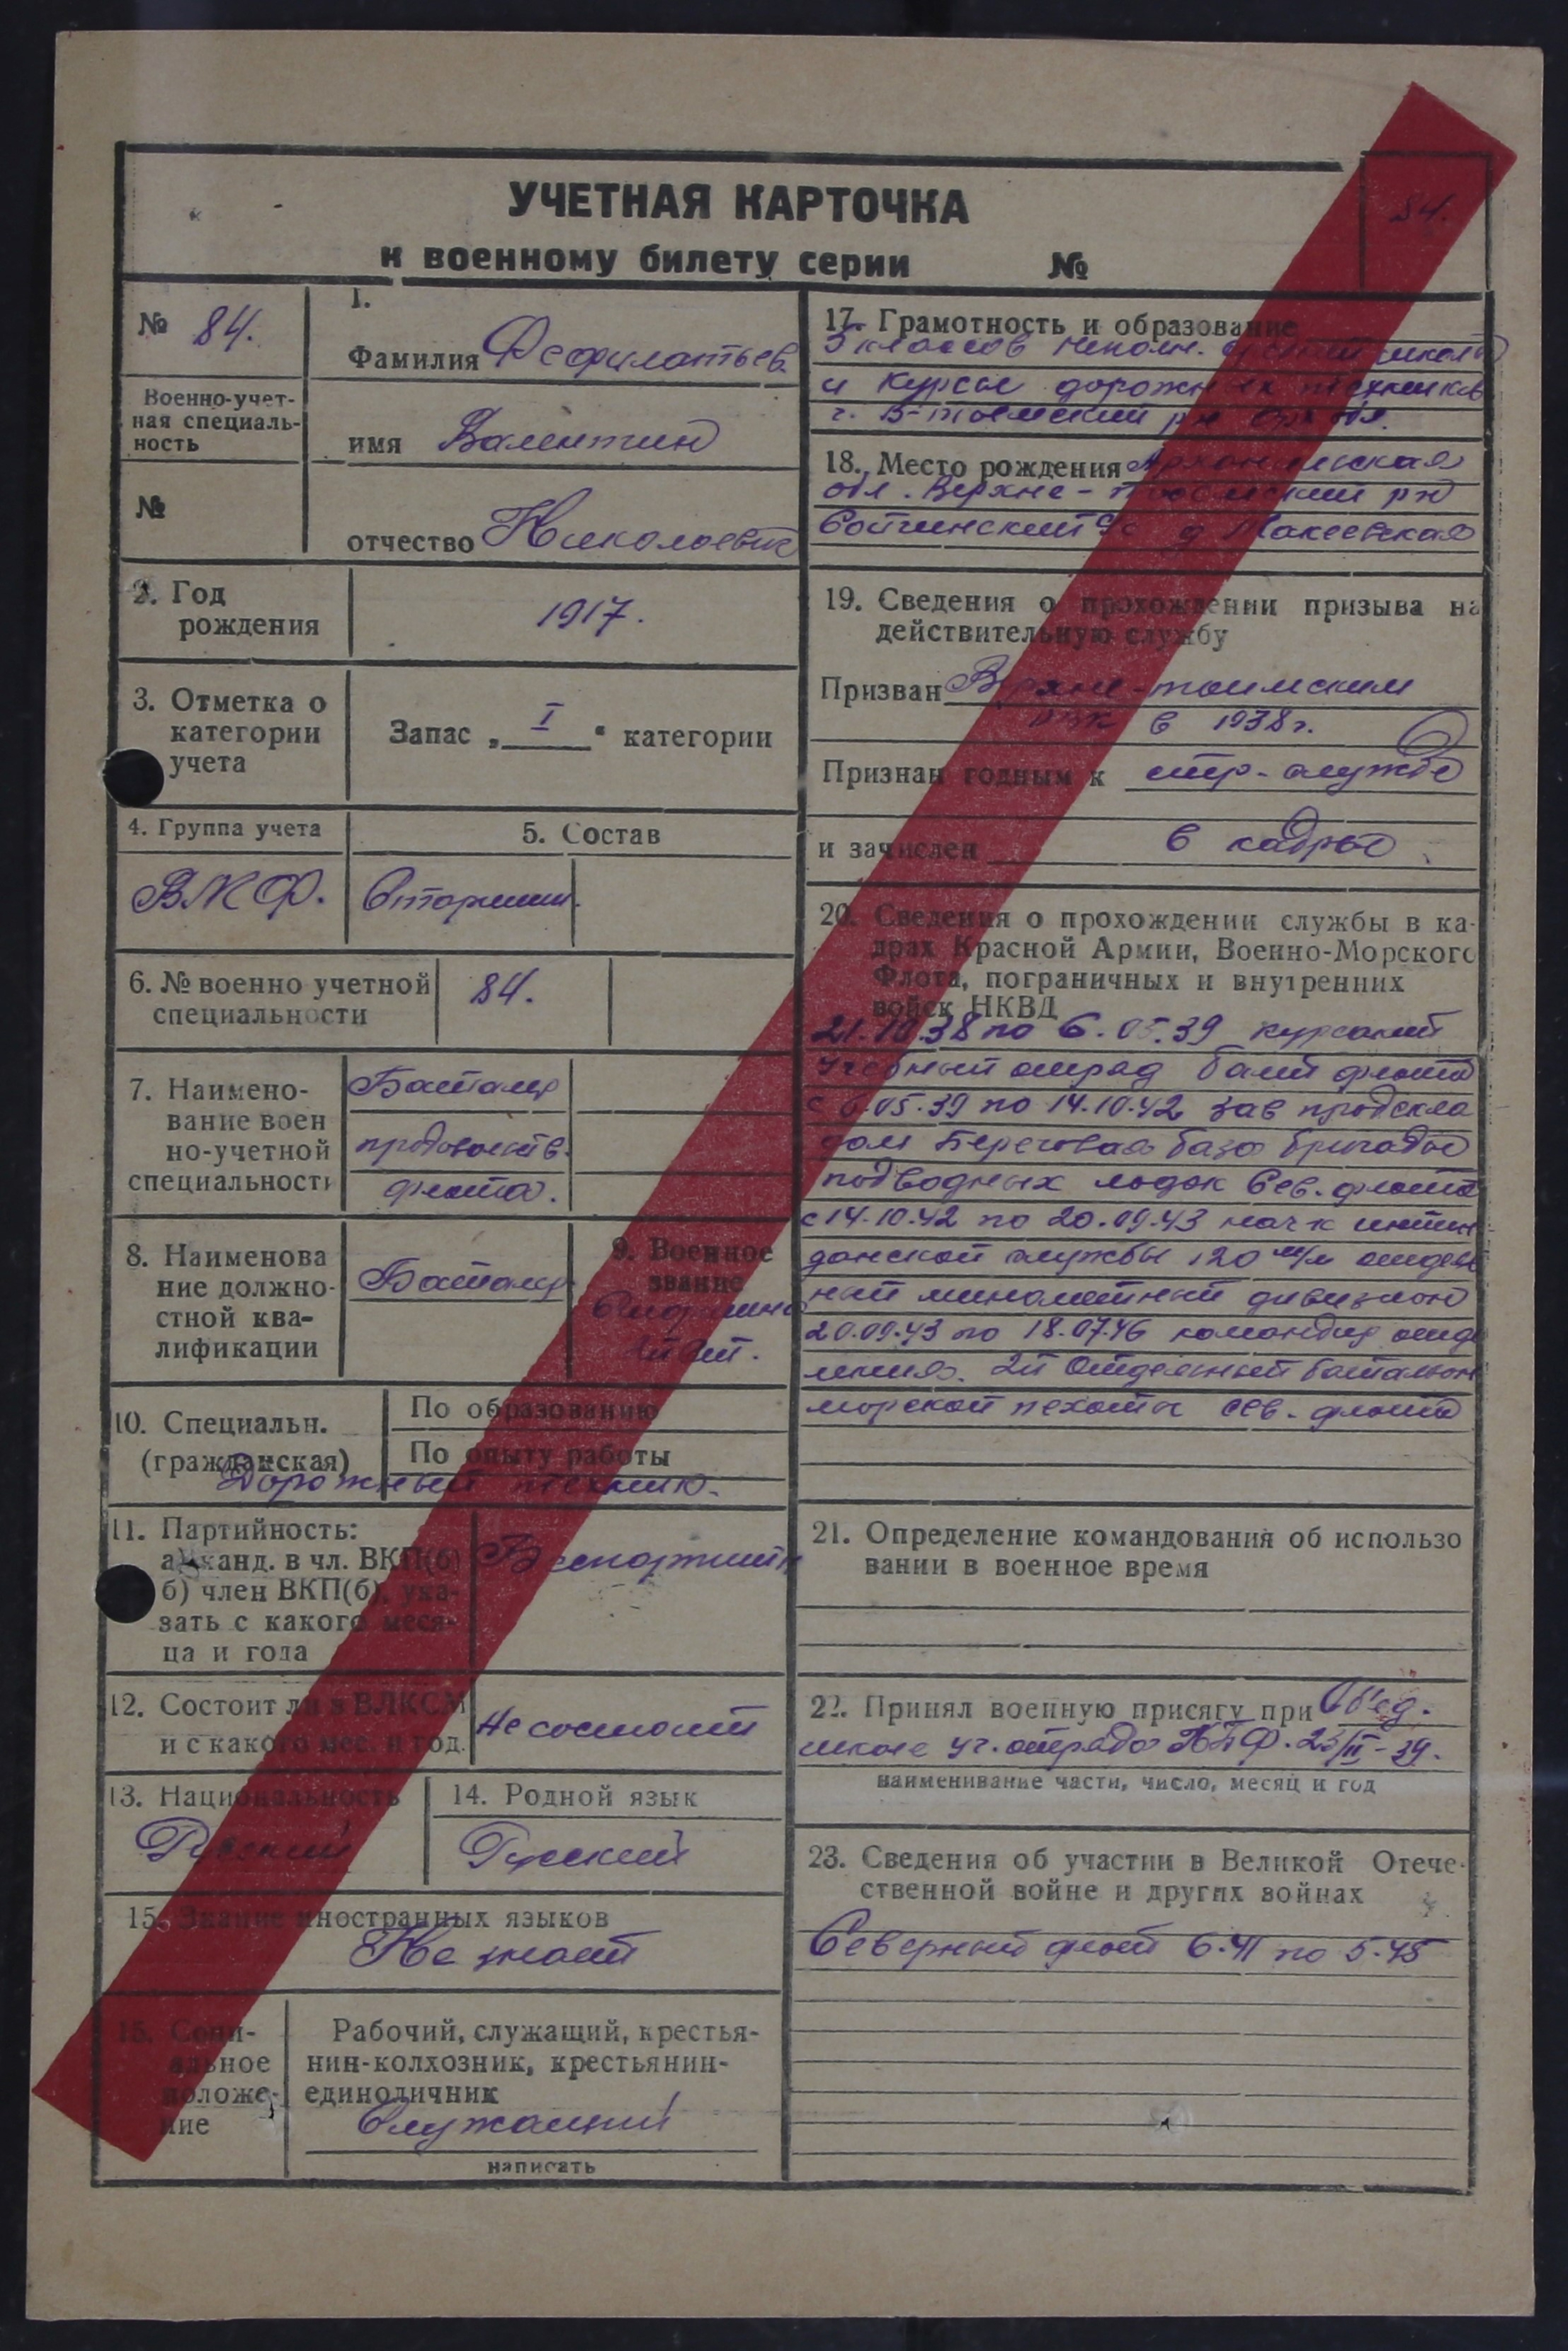 84.
УЧЕТНАЯ КАРТОЧКА
к военному билету серии №
№ 84.
Военно-учет-
ная специаль-
ность
№
1.
Фамилия Фефилатьев
имя Валентин
отчество Николаевич
2. Год
рождения
1917.
3. Отметка о
категории
учета
Запас „ I “ категории
4. Группа учета
ВМФ.
5. Состав
Старшин.
6. № военно учетной
специальности
84.
7. Наимено-
вание воен
но-учетной
специальности
Баталер
продовольств.
флота.
8. Наименова
ние должно-
стной ква-
лификации
Баталер
9. Военное
звание
Старшина
ст.
10. Специальн.
(гражданская)
По образованию
По опыту работы
Дорожный техник.
11. Партийность:
а) канд. в чл. ВКП(б)
б) член ВКП(б), ука-
зать с какого меся-
ца и года
Беспартийн
12. Состоит ли в ВЛКСМ
и с какого мес. и год.
Не состоит
13. Национальность
Русский
14. Родной язык
Русский
15. Знание иностранных языков
Не знает
15. Соци-
альное
положе-
ние
Рабочий, служащий, крестья-
нин-колхозник, крестьянин-
единоличник
Служащий
написать
17. Грамотность и образование
5 классов неполн. средней школы
и курсы дорожных техников
г. В-тоемский рн Арх обл.
18. Место рождения Архангельская
обл. Верхне-тоемский рн
Сойгинский с/с д Макеевская
19. Сведения о прохождении призыва на
действительную службу
Призван Верхне-тоимским
РВК в 1938 г.
Признан годным к стр-службе
и зачислен в кадры
20. Сведения о прохождении службы в ка-
драх Красной Армии, Военно-Морского
Флота, пограничных и внутренних
войск НКВД
21.10.38 по 6.05.39 курсант
Учебный отряд Балт флота
с 6.05.39 по 14.10.42 зав продскла
дом Береговая база бригады
подводных лодок Сев. флота
с 14.10.42 по 20.09.43 нач-к интен
данской службы 120 м/м отдель
ный минометный дивизион
20.09.43 по 18.07.46 командир отде
ления. 2й Отдельный батальон
морской пехоты Сев. флота
21. Определение командования об использо
вании в военное время
22. Принял военную присягу при Объед.
школе уч. отряда КБФ. 23/II-39.
наименивание части, число, месяц и год
23. Сведения об участии в Великой Отече-
ственной войне и других войнах
Северный флот 6-41 по 5-45